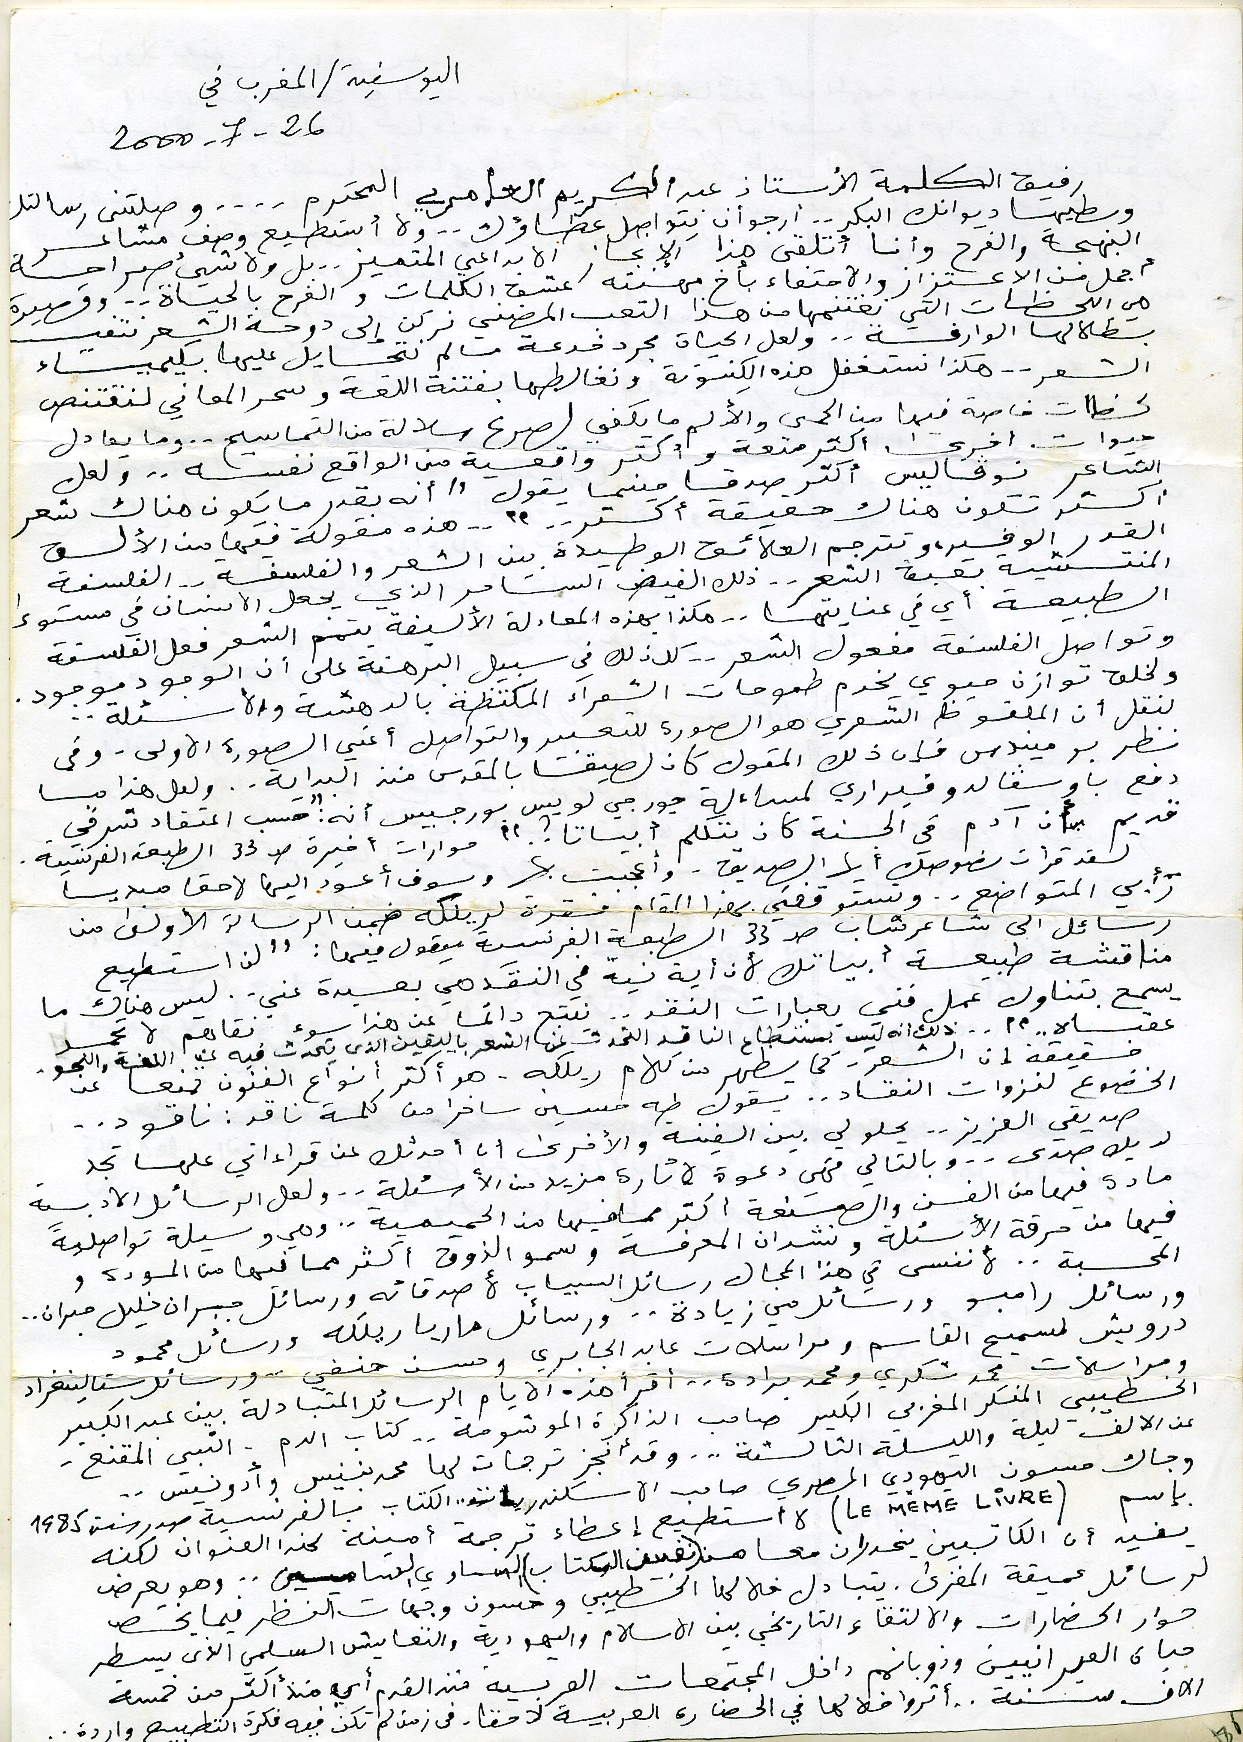 اليوسفية/المغرب في
2000-7-26
رفيق الكلمة الأستاذ عبد الكريم العامري المحترم .... وصلتني رسالتك
وبطيها ديوانك البكر.. أرجو أن يتواصل عطاؤك.. ولا أستطيع وصف مشاعر
البهجة والفرح وأنا أتلقى هذا الإنجاز الابداعي المتميز.. بل ولا شيء صراحة
أجمل من الاعتزاز والاحتفاء بأخ مهنته عشق الكلمات و الفرح بالحياة.. وقصيرة
هي اللحظات التي نغتنمها من هذا التعب المضني نركن إلى دوحة الشعر نتفيء
بظلالها الوارفة.. ولعل الحياة مجرد خدعة مالم نتحايل عليها بكيمياء
الشعر.. هكذا نستغفل هذه الكينونة ونغالطها بفتنة اللغة وسحر المعاني لنقتنص
لحظات خاصة فيها من الحمى والألم ما يكفي لصرع سلالة من التماسيح.. وما يعادل
حيوات أخرى، أكثر متعة و أكثر واقعية من الواقع نفسه.. ولعل
الشاعر نوفاليس أكثر صدقا حينما يقول "أنه بقدر ما يكون هناك شعر
أكثر تكون هناك حقيقة أكثر.." .. هذه مقولة فيها من الألق
القدر الوفير، وتترجم العلائق الوطيدة بين الشعر والفلسفة.. الفلسفة
المنتشية بعبق الشعر.. ذلك الفيض الساحر الذي يجعل الانسان في مستوى
الطبيعة أي في عنايتها.. هكذا بهذه المعادلة الأليفة يتمم الشعر فعل الفلسفة
وتواصل الفلسفة مفعول الشعر.. كل ذلك في سبيل البرهنة على أن الوجود موجود.
ولخلق توازن حيوي يخدم طموحات الشعراء المكتظة بالدهشة والأسئلة..
لنقل أن الملفوظ الشعري هو الصورة للتعبير والتواصل أعني الصورة الأولى. وفي
نظر بو ميندس فإن ذلك المقول كان لصيقا بالمقدس منذ البداية.. ولعل هذا ما
دفع باوسفالدو فيراري لمساءلة جورجي لويس بورجيس أنه: "حسب اعتقاد شرقي
قديم بأن آدم في الجنة كان يتكلم أبياتا؟" حوارات أخيرة ص 33 الطبعة الفرنسية.
لقد قرأت نصوصك أيها الصديق. وأعجبت بها وسوف أعود اليها لاحقا مبديا
رأيي المتواضع.. وتستوقفني بهذا المقام فقرة لريلكه ضمن الرسالة الأولى من
رسائل الى شاعر شاب ص 33 الطبعة الفرنسية يقول فيها: "لن استطيع
مناقشة طبيعة أبياتك لأن أية نية في النقد هي بعيدة عني.. ليس هناك ما
يسمح بتناول عمل فني بعبارات النقد.. ينتج دائما عن هذا سوء تفاهم لا تحمد
عقباه.." .. ذلك أنه ليس بمستطاع الناقد التحدث عن الشعر باليقين الذي يتحدث فيه عن اللغة والنحو.
حقيقة إن الشعر، كما يظهر من كلام ريلكه. هو أكثر أنواع الفنون تمنعا عن
الخضوع لنزوات النقاد.. يقول طه حسين ساخرا من كلمة ناقد: ناقود...
صديقي العزيز.. يحلو لي بين الفينة والأخرى أن أحدثك عن قراءاتي علها تجد
لديك صدى.. وبالتالي فهي دعوة لإثارة مزيد من الأسئلة.. ولعل الرسائل الأدبية
مادة فيها من الفن والصنعة أكثر مما فيها من الحميمية.. وهي وسيلة تواصلية
فيها من حرقة الأسئلة ونشدان المعرفة وسمو الذوق أكثر مما فيها من المودة و
المحبة.. لا ننسى في هذا المجال رسائل السياب لأصدقائه ورسائل جبران خليل جبران..
ورسائل رامبو ورسائل مي زيادة.. ورسائل ماريا ريلكه ورسائل محمود
درويش لسميح القاسم ومراسلات عابد الجابري وحسن حنفي.. ورسائل ستالينغراد
ومراسلات محمد شكري ومحمد برادة.. أقرأ هذه الأيام الرسائل المتبادلة بين عبد الكبير
الخطيبي المفكر المغربي الكبير صاحب الذاكرة الموشومة.. كتاب الدم. النبي المقنع.
عن الألف ليلة والليلة الثالثة... وقد أنجز ترجمات لها محمد بنيس وأدونيس..
وجاك حسون اليهودي المصري صاحب الاسكندريات. الكتاب بالفرنسية صدر سنة 1985
بإسم (LE MÊME LIVRE) لا أستطيع إعطاء ترجمة أمينة لهذا العنوان لكنه
يفيد أن الكاتبين ينحدران معا من (نفس الكتاب) السماوي.. وهو يعرض
لرسائل عميقة المغزى. يتبادل خلالها الخطيبي وحسون وجهات النظر فيما يخص
حوار الحضارات والالتقاء التاريخي بين الاسلام واليهودية والتعايش السلمي الذي يسطر
حياة العبرانيين وذوبانهم داخل المجتمعات العربية منذ القدم أي منذ أكثر من خمسة
آلاف سنة.. أثروا خلالها في الحضارة العربية لاحقا. في زمن لم تكن فيه فكرة التطبيع واردة..